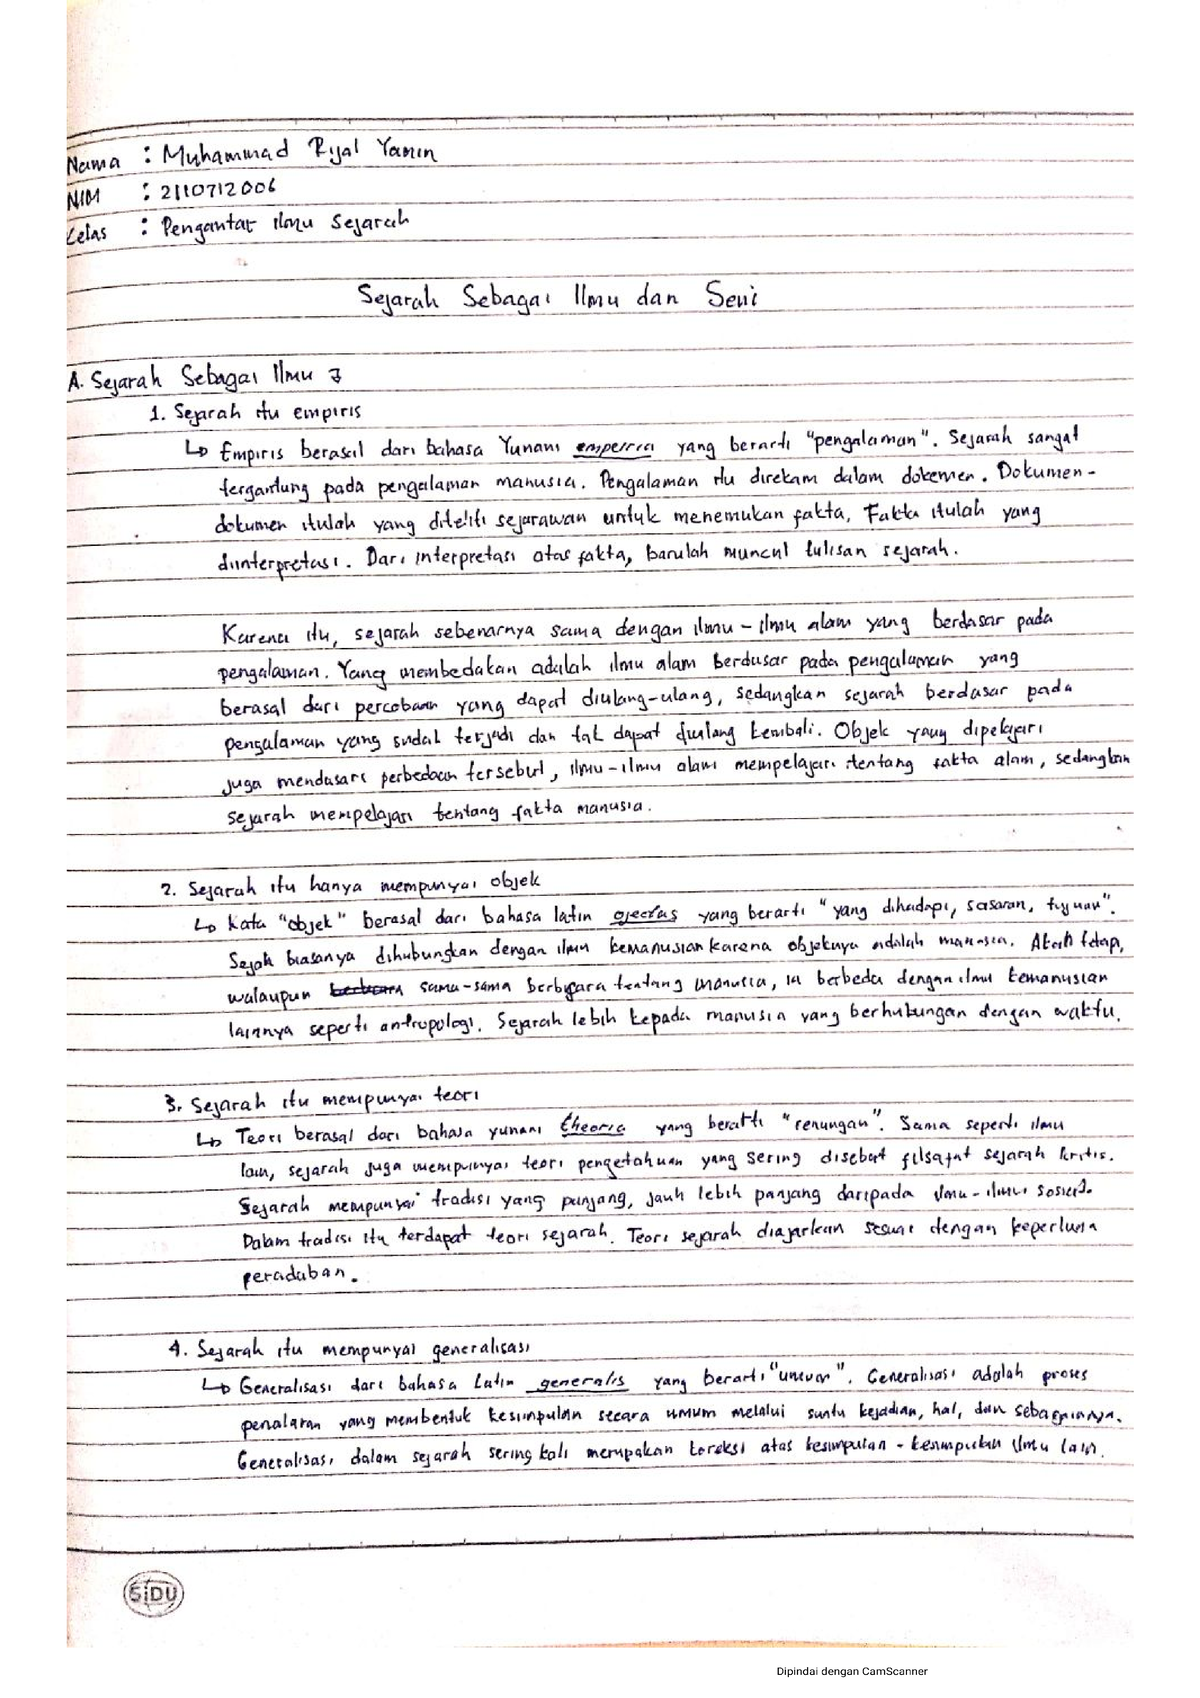 Nama : Muhammad Rijal Yamin
NIM : 2110712006
Kelas : Pengantar Ilmu Sejarah
Sejarah Sebagai Ilmu dan Seni
A. Sejarah Sebagai Ilmu :
1. Sejarah itu empiris
↳ Empiris berasal dari bahasa Yunani empeiria yang berarti "pengalaman". Sejarah sangat
tergantung pada pengalaman manusia. Pengalaman itu direkam dalam dokumen. Dokumen-
dokumen itulah yang diteliti sejarawan untuk menemukan fakta, Fakta itulah yang
diinterpretasi. Dari interpretasi atas fakta, barulah muncul tulisan sejarah.
Karena itu, sejarah sebenarnya sama dengan ilmu-ilmu alam yang berdasar pada
pengalaman. Yang membedakan adalah ilmu alam berdasar pada pengalaman yang
berasal dari percobaan yang dapat diulang-ulang, sedangkan sejarah berdasar pada
pengalaman yang sudah terjadi dan tak dapat diulang kembali. Objek yang dipelajari
juga mendasari perbedaan tersebut, ilmu-ilmu alam mempelajari tentang fakta alam, sedangkan
sejarah mempelajari tentang fakta manusia.
2. Sejarah itu hanya mempunyai objek
↳ Kata "objek" berasal dari bahasa latin ojectus yang berarti "yang dihadapi, sasaran, tujuan".
Sejak biasanya dihubungkan dengan ilmu kemanusian karena objeknya adalah manusia. Akan tetapi,
walaupun sama-sama berbicara tentang manusia, ia berbeda dengan ilmu kemanusian
lainnya seperti antropologi. Sejarah lebih kepada manusia yang berhubungan dengan waktu.
3. Sejarah itu mempunyai teori
↳ Teori berasal dari bahasa yunani theoria yang berarti "renungan". Sama seperti ilmu
lain, sejarah juga mempunyai teori pengetahuan yang sering disebut filsafat sejarah kritis.
Sejarah mempunyai tradisi yang panjang, jauh lebih panjang daripada ilmu-ilmu sosial.
Dalam tradisi itu terdapat teori sejarah. Teori sejarah diajarkan sesuai dengan keperluan
peradaban.
4. Sejarah itu mempunyai generalisasi
↳ Generalisasi dari bahasa Latin generalis yang berarti "umum". Generalisasi adalah proses
penalaran yang membentuk kesimpulan secara umum melalui suatu kejadian, hal, dan sebagainya.
Generalisasi dalam sejarah sering kali merupakan koreksi atas kesimpulan-kesimpulan ilmu lain.
SiDU
Dipindai dengan CamScanner